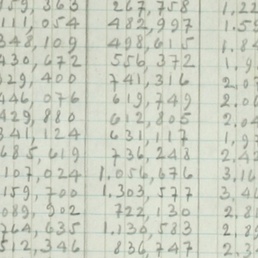 159,363 267,758 1.22
111,054 482,997 1.59
348,109 498,615 1.84
430,672 556,372 1.9
429,400 741,316 2.07
446,076 619,749 2.06
429,880 612,805 2.04
341,124 631,117 1,97
685,619 736,248 2.42
107,024 1.056,676 3.16
159,700 1.303,577 3.46
089,902 722,130 2.81
764,635 1.130,583 2.89
512,346 836,747 2.34